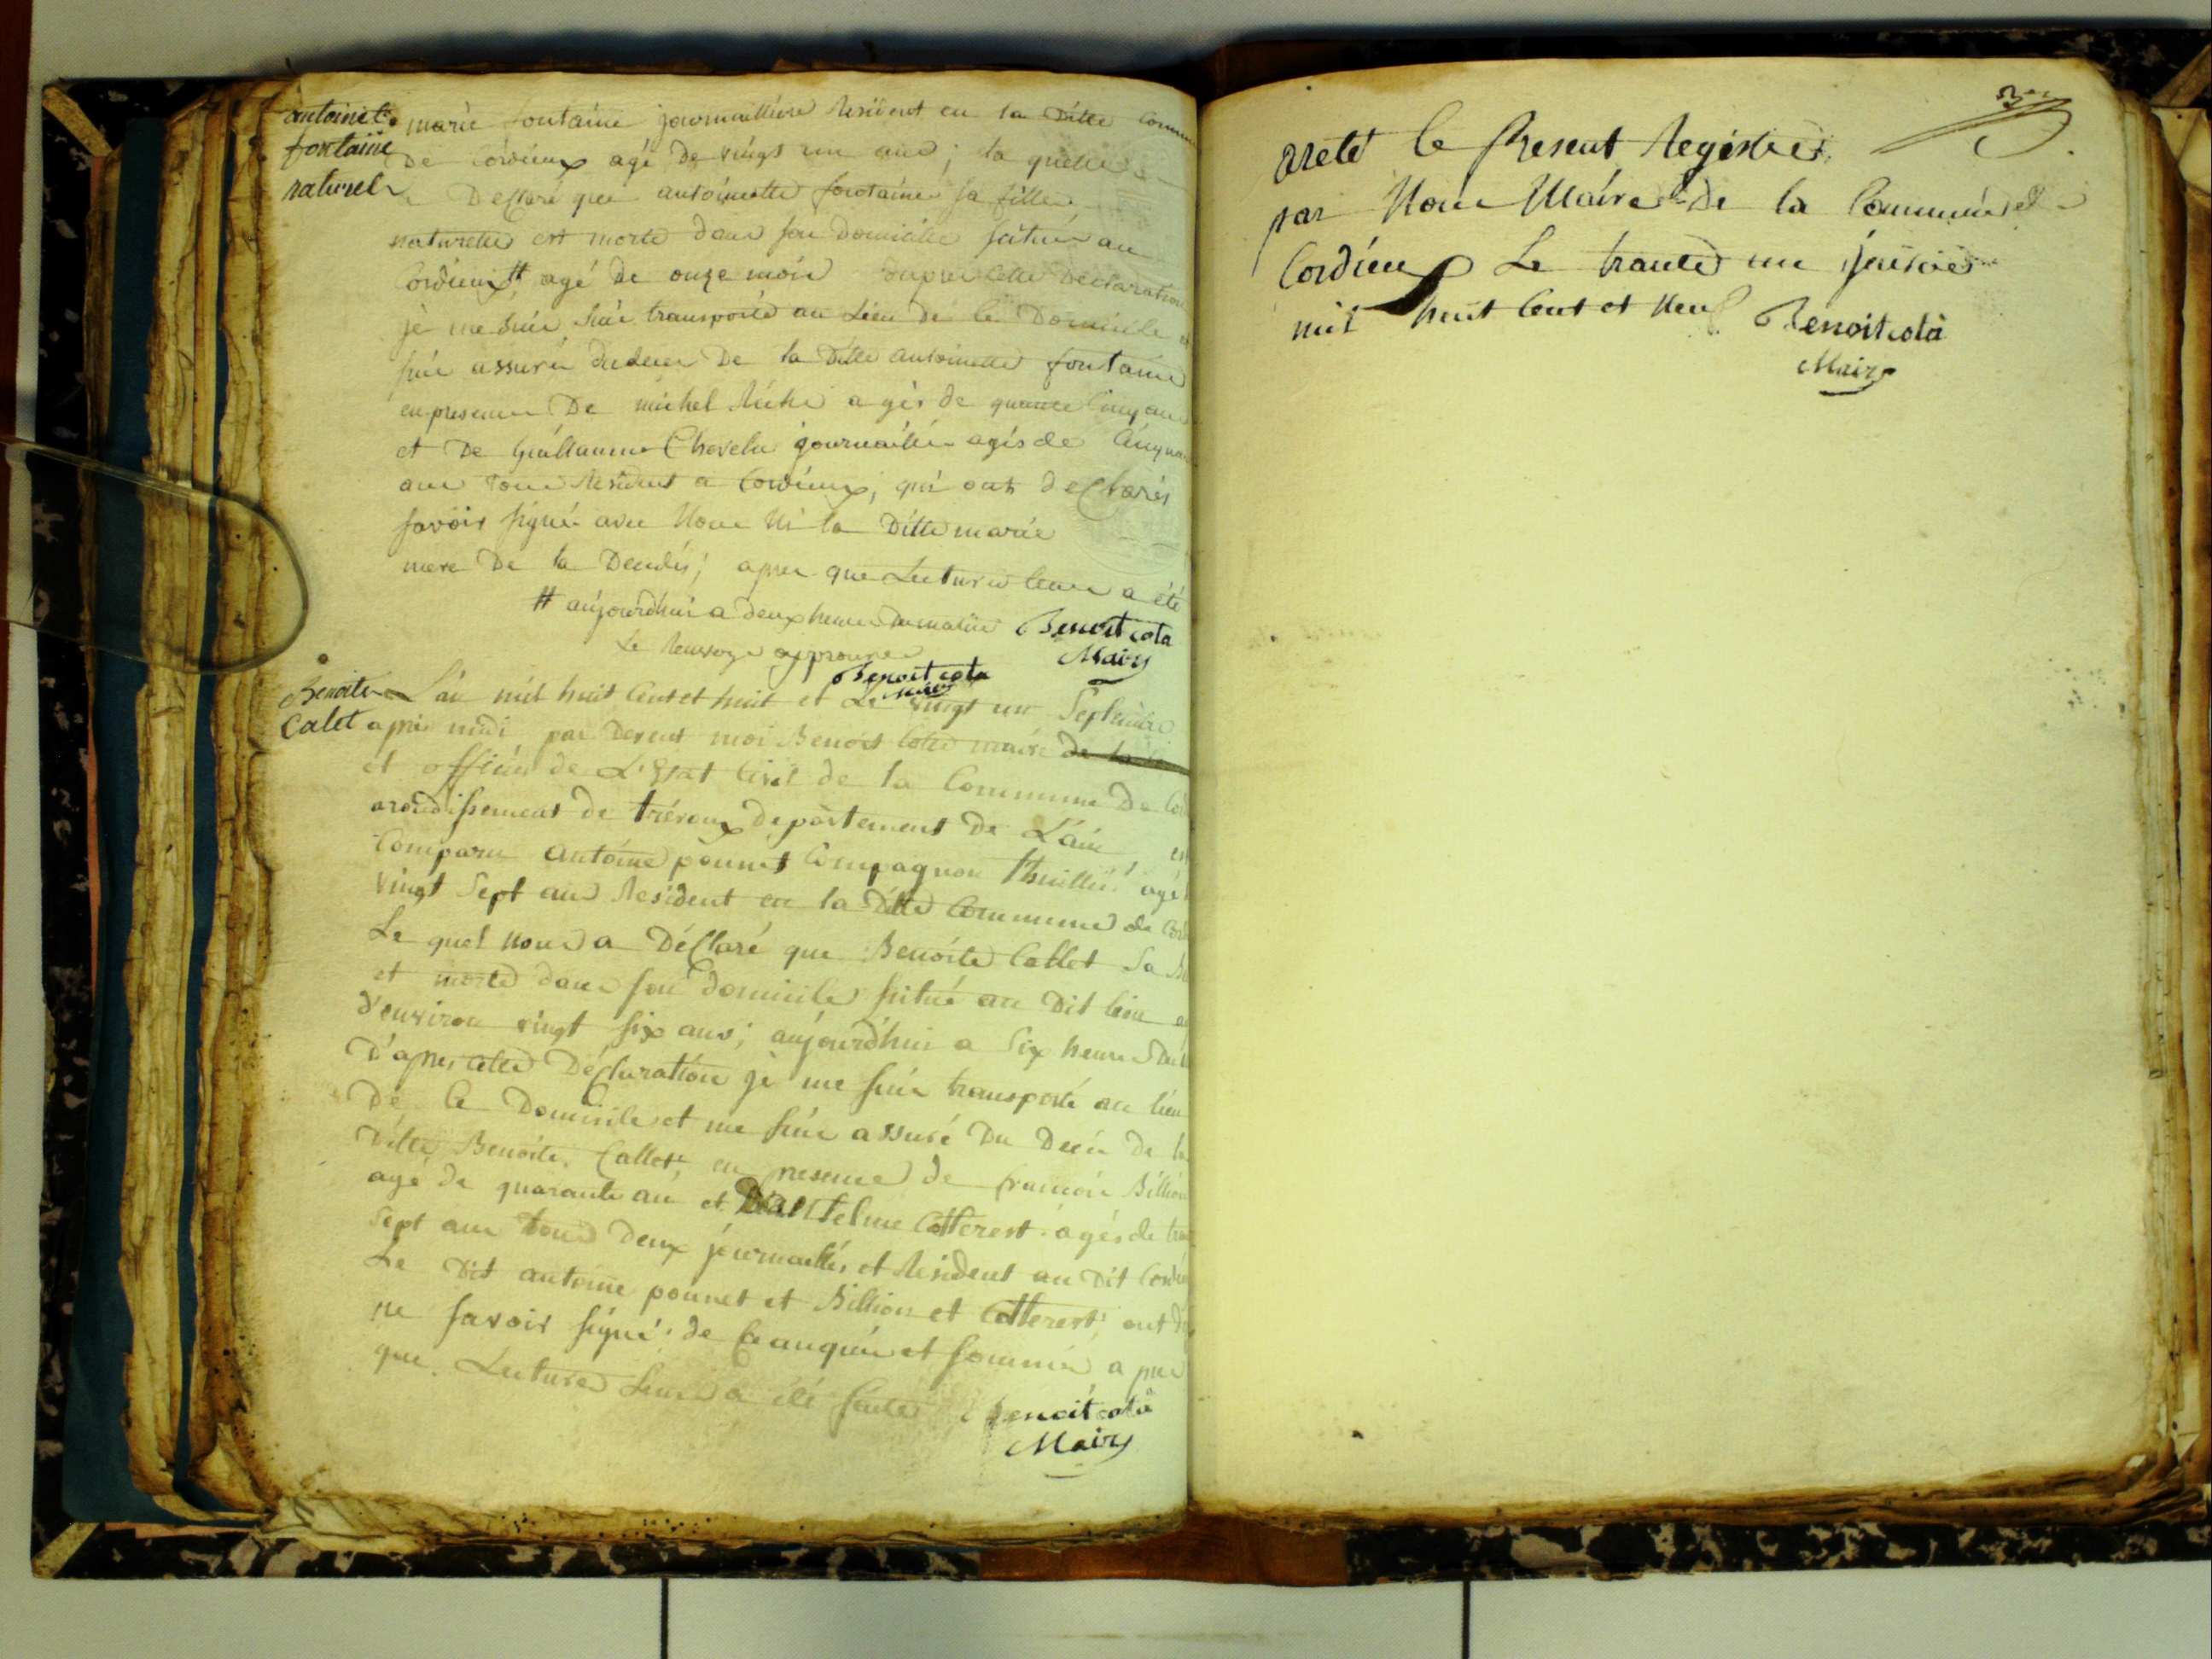 antoinete
fontaine
naturel
marie fontaine journailliere Resident en la ditte Commu
de Cordieux agé de vingt un ans; la quelle
Declaré que antoinette fontaine sa fille
naturelle est morte dans son domicille scitué au
Cordieux # agé de onze mois dapres cette declaration
je me suis transporté au Lieu de ce Domicile
suis assuré du deces De la ditte antoinette fontaine
en presence De michel agés de quarante Cinq ans
et De Guillaume Chevelu journailler agés de Cinqua
ans tous Resident a Cordieux, qui ont declarés
savoir signé avec Nous Ni la Ditte marie
mere De la Decedés; apres que Lecture leurs a été
# aujourdhui a deux heures du matin Benoit cota
Le Renvoye approuvé Maire
Benoit cota
Maire
Benoite
Calet
L'an mil huit Cent et huit et Le vingt un Septembre
apres midi par devent moi Benoit Cotta maire de la
et officier de L'Etat Civil de la Commune De Cor
arondissement de trévoux departement De L'ain, est
Comparu Antoine ponnet Compagnon thuillier agé
vingt Sept ans Resident en la Ditte Commune de Cor
Le quel nous a Déclaré que Benoite Callet Sa
et morte dans son domicile scitué au Dit lieu
d'environ vingt six ans; aujourd'hui a Six heures Du
D'apres cette Déclaration je me suis transporté au lieu
De ce Domicile et me suis assuré Du Decès De la
Ditte Benoite Callet, en presence de francois Billion
agé de quarante ans et Bartelme Cotterest agés de tren
Sept ans tous Deux journaillés et Resident au Dit Cordie
Le Dit antoine ponnet et Billion et Cotterest ont d
ne savoir signé de ce anquis et sommé, apres
que Lecture leurs a été faite Benoit cota
Maire
areté le Present Registre
par Nous Maire de la Commune de
Cordieux Le trante un janvier
mil huit Cent et Neuf Benoit cota
Maire